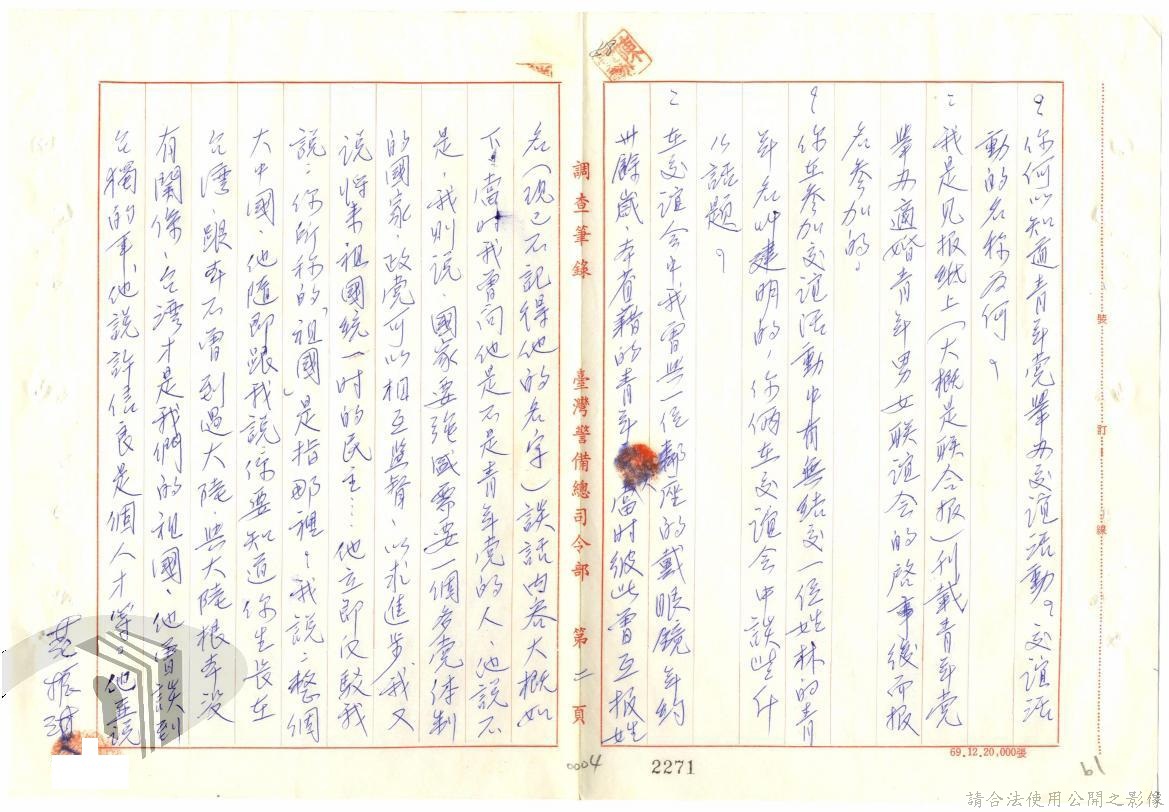 ？你何以知道青年党举办交誼活動？交誼活
動的名称为何？
：我是见报纸上（大概是联合报）刊載青年党
举办適婚青年男女联谊会的啓事後而报
名参加的。
？你在参加交誼活動中有無結交一位姓林的青
年名叫建明的，你倆在交誼会中談些什
么話題？
：在交誼会中，我曾與一位鄰座的戴眼鏡年約
卅餘歲，本省籍的青年，當时彼此曾互报姓
調查筆錄 臺灣警備總司令部 第二頁
名（現已不記得他的名字）談話内容大概如
下：當时我曾问他是不是青年党的人，他説不
是，我则说，國家要強盛需要一個多党体制
的國家，政党可以相互监督，以求進步，我又
说将来祖國統一时的民主…他立即反駁我
説：你所称的「祖國」是指那裡，我説：整個
大中國，他隨即跟我説，你要知道你生長在
台灣，跟本不曾到過大陸，與大陸根本没
有関係，台湾才是我們的祖國，他曾談到
台獨的事，他説許信良是個人才等。他並説
裝
訂
線
69.12.20,000張
2271
0004
61
請合法使用公開之影像